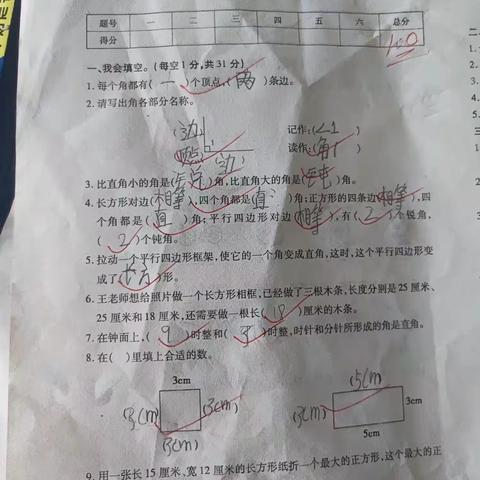 题号 一 二 三 四 五 六 总分
得分 100
一、我会填空。(每空1分,共31分)
1. 每个角都有( 一 )个顶点,( 两 )条边。
2. 请写出角各部分名称。
(边) 记作:(∠1)
顶点 1 (边) 读作:(角1)
3. 比直角小的角是( 锐 )角,比直角大的角是( 钝 )角。
4. 长方形对边(相等),四个角都是(直)角;正方形的四条边(相等),四
个角都是(直)角;平行四边形对边(相等),有( 2 )个锐角,
( 2 )个钝角。
5. 拉动一个平行四边形框架,使它的一个角变成直角,这时,这个平行四边形变
成了(长方)形。
6. 王老师想给照片做一个长方形相框,已经做了三根木条,长度分别是25厘米、
25厘米和18厘米,还需要做一根长( 18 )厘米的木条。
7. 在钟面上,( 9 )时整和( 3 )时整,时针和分针所形成的角是直角。
8. 在( )里填上合适的数。
3cm (5cm)
(3cm) (3cm) (3cm) 3cm
(3cm) 5cm
9. 用一张长15厘米、宽12厘米的长方形纸折一个最大的正方形,这个最大的正